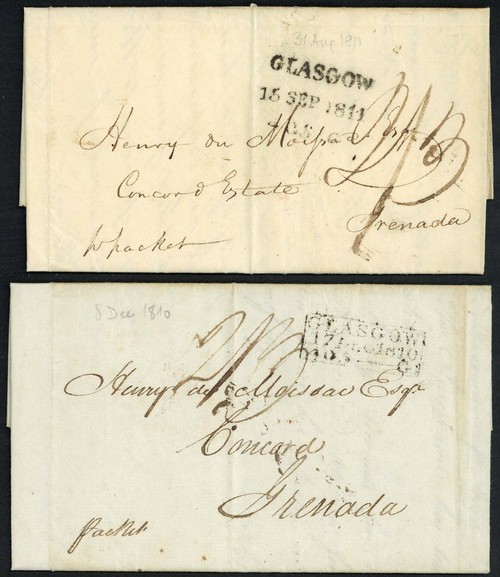 31 Aug 1811
GLASGOW
15 SEP 1811
Henry du Moissac Esqr
Concord Estate
Grenada
p packet
8 Dec 1810
GLASGOW
17 DEC 1810
2/3
Henry du Moissac Esqr
Concord
Grenada
packet